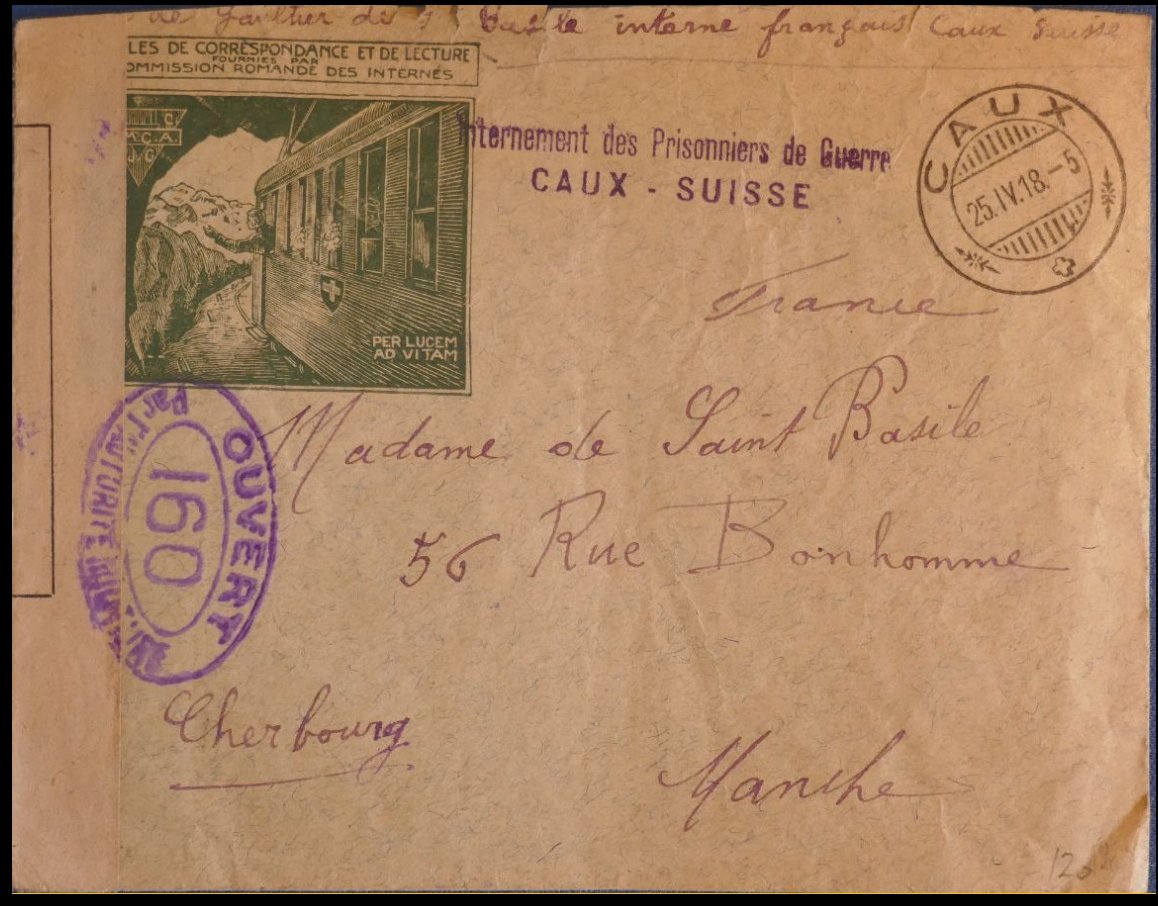 de Gaultier de St Basile interné français Caux Suisse
LES DE CORRESPONDANCE ET DE LECTURE
FOURNIES PAR
OMMISSION ROMANDE DES INTERNÉS
M.C.A.
PER LUCEM
AD VITAM
Internement des Prisonniers de Guerre
CAUX - SUISSE
CAUX
25.IV.18.-5
France
Madame de Saint Basile
56 Rue Bonhomme
Cherbourg
Manche
OUVERT
160
Par l'AUTORITÉ
120